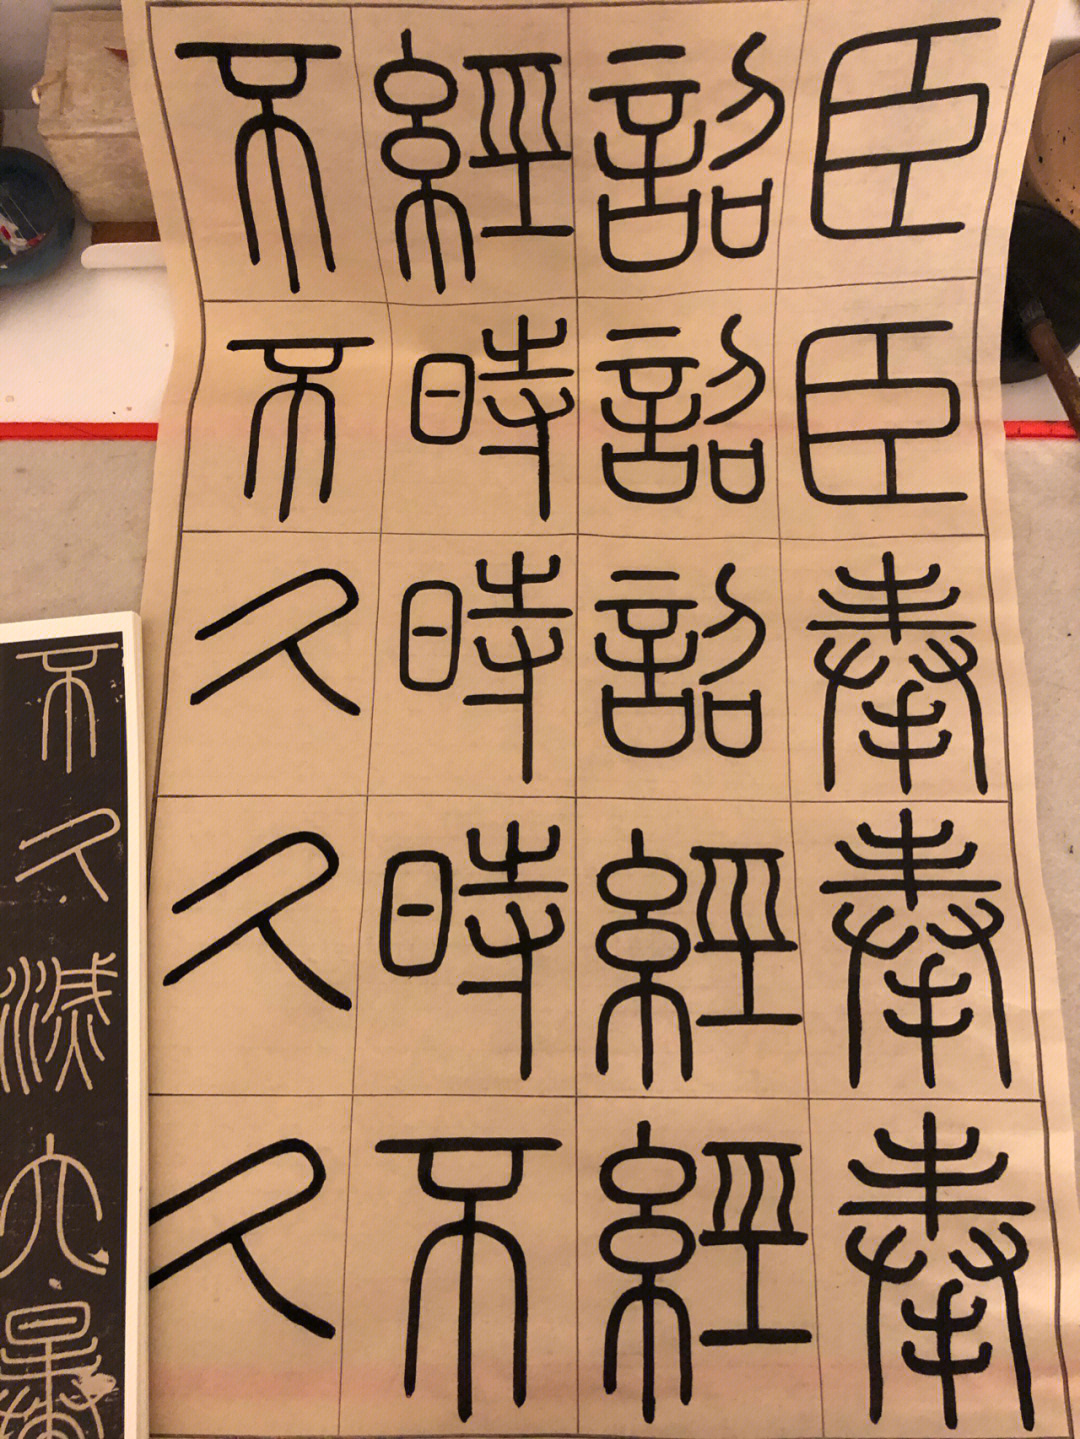 臣臣奉奉奉
詔詔詔經經
經時時時不
不不久久久
不久滅六暴